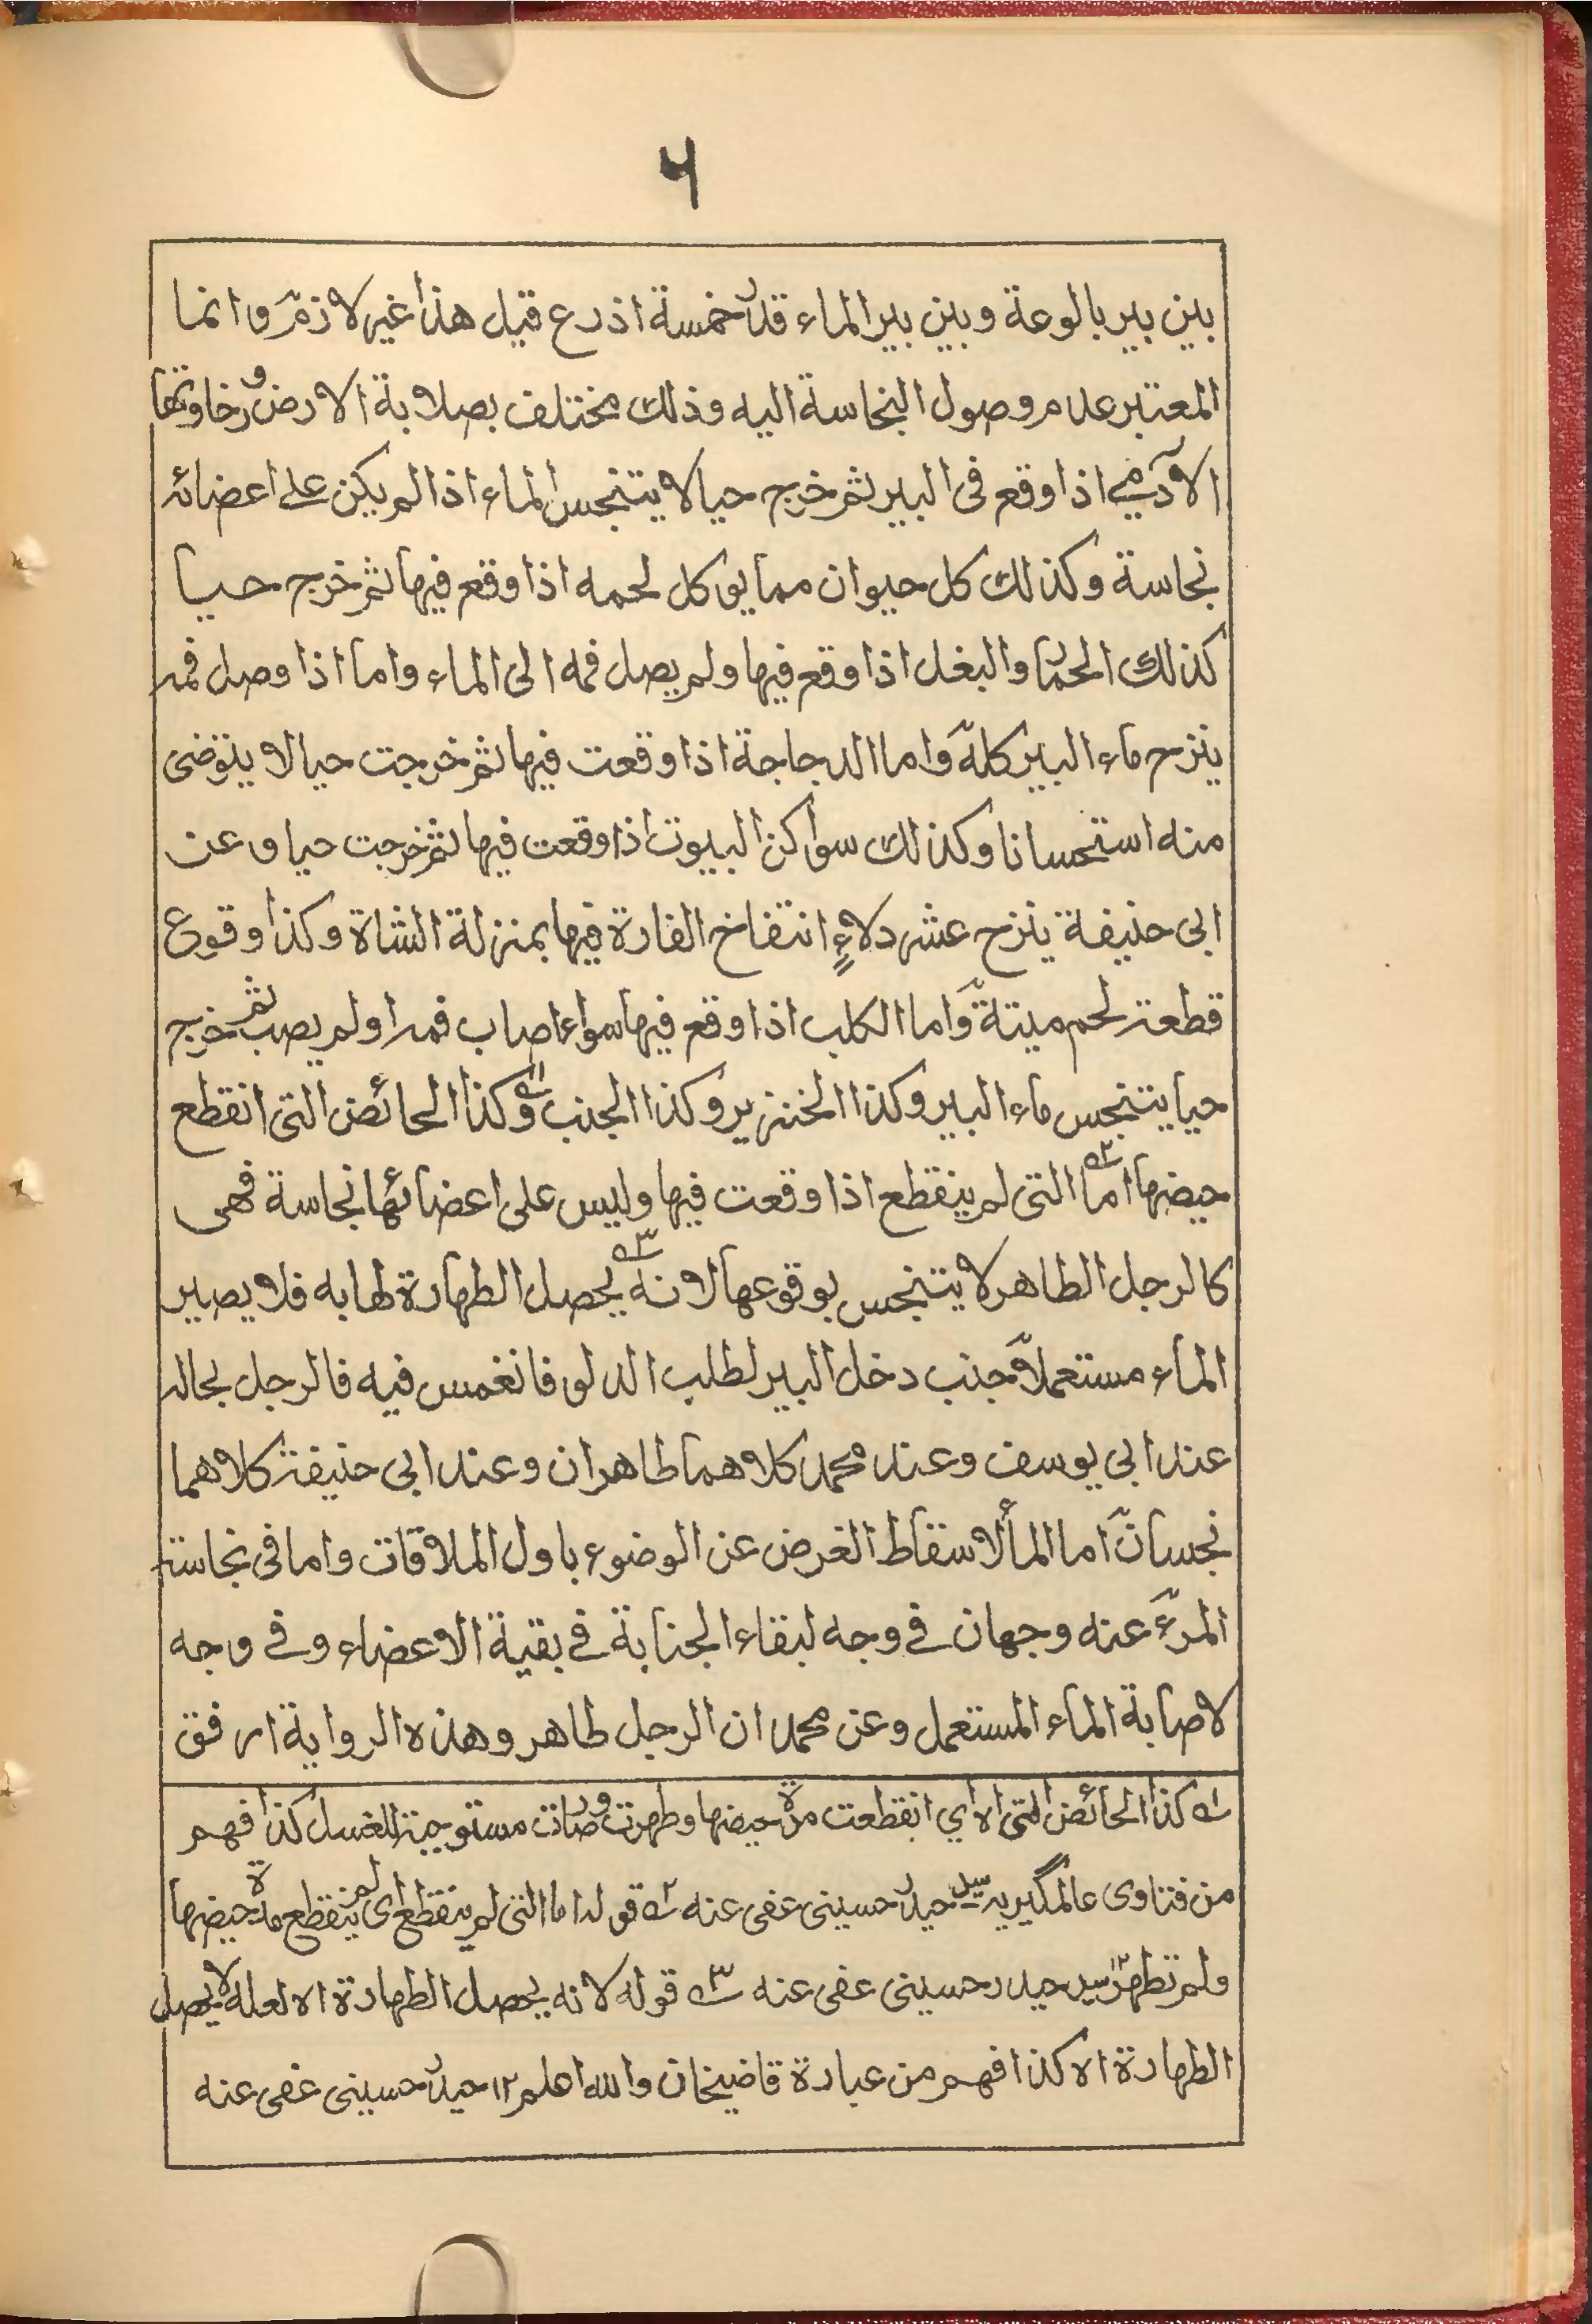 ٦
بين بير بالوعة وبين بير الماء قدر خمسة اذرع قيل هذا غير لازم وانما
المعتبر عدم وصول النجاسة اليه وذلك مختلف بصلابة الارض ورخاوتها
الآدمي اذا وقع فى البير ثم خرج حيا لا يتنجس الماء اذا لم يكن على اعضائه
نجاسة وكذلك كل حيوان مما يوكل لحمه اذا وقع فيها ثم خرج حيا
كذلك الحمار والبغل اذا وقع فيها ولم يصل فمه الى الماء واما اذا وصل فمه
ينزح ماء البير كله واما الدجاجة اذا وقعت فيها ثم خرجت حيا لا يتوضى
منه استحسانا وكذلك سواكن البيوت اذا وقعت فيها ثم خرجت حيا وعن
ابى حنيفة ينزح عشر دلاءٍ انتفاخ الفارة فيها بمنزلة الشاة وكذا وقوع
قطعة لحم ميتة واما الكلب اذا وقع فيها سواء اصاب فمه او لم يصب ثم خرج
حيا يتنجس ماء البير وكذا الخنزير وكذا الجنب ١ وكذا الحائض التى انقطع
حيضها اما ٢ التى لم ينقطع اذا وقعت فيها وليس على اعضائها نجاسة فهى
كالرجل الطاهر لا يتنجس بوقوعها لانه ٣ يحصل الطهارة لها به فلا يصير
الماء مستعملا جنب دخل البير لطلب الدلو فانغمس فيه فالرجل بحاله
عند ابى يوسف وعند محمد كلاهما طاهران وعند ابى حنيفة كلاهما
نجسان اما الماء لاسقاط الغرض عن الوضوء باول الملاقات واما فى نجاسة
المرء عنه وجهان فى وجه لبقاء الجنابة فى بقية الاعضاء وفى وجه
لاصابة الماء المستعمل وعن محمد ان الرجل طاهر وهذه الرواية ارفق
١ كذا الحائض التى الا اي انقطعت مدة حيضها وطهرت وصارت مستوجبة للغسل كذا فهم
من فتاوى عالمگيريه سيد حيدر حسينى عفى عنه ٢ قوله اما التى لم ينقطع اى لم ينقطع مدة حيضها
ولم تطهر ١٢ سيد حيدر حسينى عفى عنه ٣ قوله لانه يحصل الطهارة الا لعله لا يحصل
الطهارة الا كذا فهم من عبارة قاضيخان والله اعلم ١٢ حيدر حسينى عفى عنه